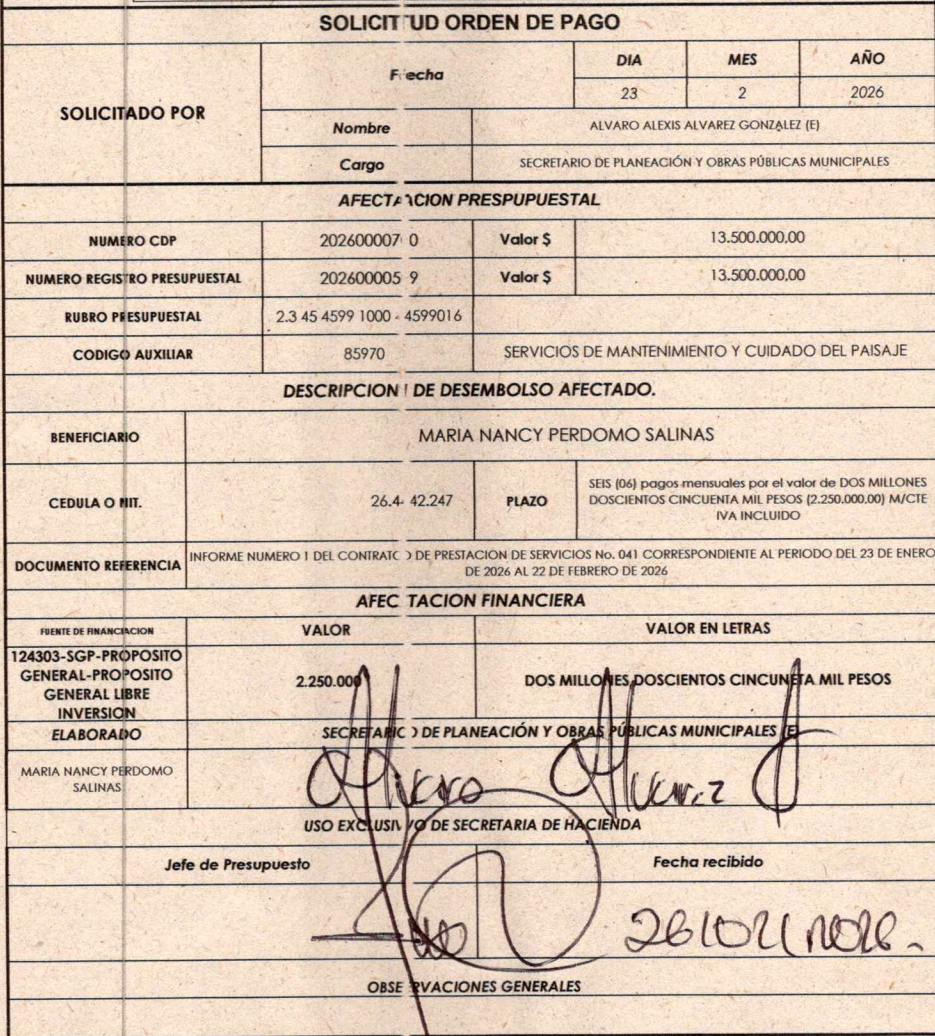 SOLICITUD ORDEN DE PAGO
SOLICITADO POR
Fecha
DIA MES AÑO
23 2 2026
Nombre ALVARO ALEXIS ALVAREZ GONZALEZ (E)
Cargo SECRETARIO DE PLANEACIÓN Y OBRAS PÚBLICAS MUNICIPALES
AFECTACION PRESPUPUESTAL
NUMERO CDP Valor $ 13.500.000,00
NUMERO REGISTRO PRESUPUESTAL Valor $ 13.500.000,00
RUBRO PRESUPUESTAL 2.3 45 4599 1000 - 4599016
CODIGO AUXILIAR 85970 SERVICIOS DE MANTENIMIENTO Y CUIDADO DEL PAISAJE
DESCRIPCION DE DESEMBOLSO AFECTADO.
BENEFICIARIO MARIA NANCY PERDOMO SALINAS
CEDULA O NIT. 26.442.247 PLAZO
SEIS (06) pagos mensuales por el valor de DOS MILLONES
DOSCIENTOS CINCUENTA MIL PESOS (2.250.000,00) M/CTE
IVA INCLUIDO
DOCUMENTO REFERENCIA
INFORME NUMERO 1 DEL CONTRATO DE PRESTACION DE SERVICIOS No. 041 CORRESPONDIENTE AL PERIODO DEL 23 DE ENERO
DE 2026 AL 22 DE FEBRERO DE 2026
AFECTACION FINANCIERA
FUENTE DE FINANCIACION VALOR VALOR EN LETRAS
124303-SGP-PROPOSITO
GENERAL-PROPOSITO
GENERAL LIBRE
INVERSION
2.250.000 DOS MILLONES DOSCIENTOS CINCUNETA MIL PESOS
ELABORADO SECRETARIO DE PLANEACIÓN Y OBRAS PÚBLICAS MUNICIPALES (E)
MARIA NANCY PERDOMO
SALINAS
Alvaro Alvarez
USO EXCLUSIVO DE SECRETARIA DE HACIENDA
Jefe de Presupuesto Fecha recibido
OBSERVACIONES GENERALES